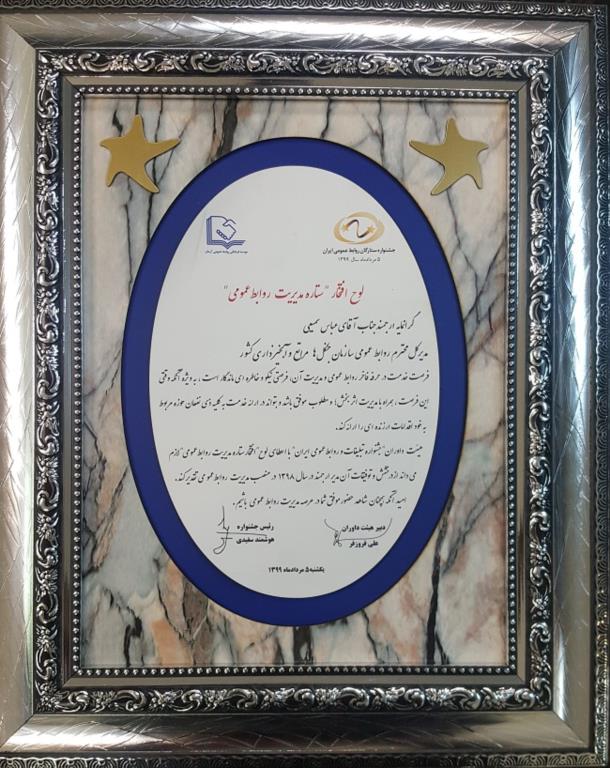 جشنواره ستارگان روابط عمومی ایران
۵ مردادماه سال ۱۳۹۹
لوح افتخار "ستاره مدیریت روابط عمومی"
گرانمایه ارجمند جناب آقای عباس سمیعی
مدیرکل محترم روابط عمومی سازمان جنگل‌ها مراتع و آبخیزداری کشور
فرصت خدمت در حرفه فاخر روابط عمومی و مدیریت آن، فرصتی نیکو و خاطره ای ماندگار است، به ویژه آنکه وقتی
این فرصت، همراه با مدیریت اثربخش، و مطلوب موفق باشد و بتواند در ارائه خدمت به کلیه ذی نفعان حوزه مربوط
به خود اقدامات ارزنده ای را ارائه کند.
هیئت داوران "جشنواره تبلیغات و روابط عمومی ایران" با اعطای لوح "افتخار ستاره مدیریت روابط عمومی" لازم
می داند از درخشش و توفیقات آن مدیر ارجمند در سال ۱۳۹۸ در منصب مدیریت روابط عمومی تقدیر کند.
امید آنکه همچنان شاهد حضور موفق شما در عرصه مدیریت روابط عمومی باشیم.
دبیر هیئت داوران
علی فروزفر
رئیس جشنواره
هوشمند سفیدی
یکشنبه ۵ مردادماه ۱۳۹۹